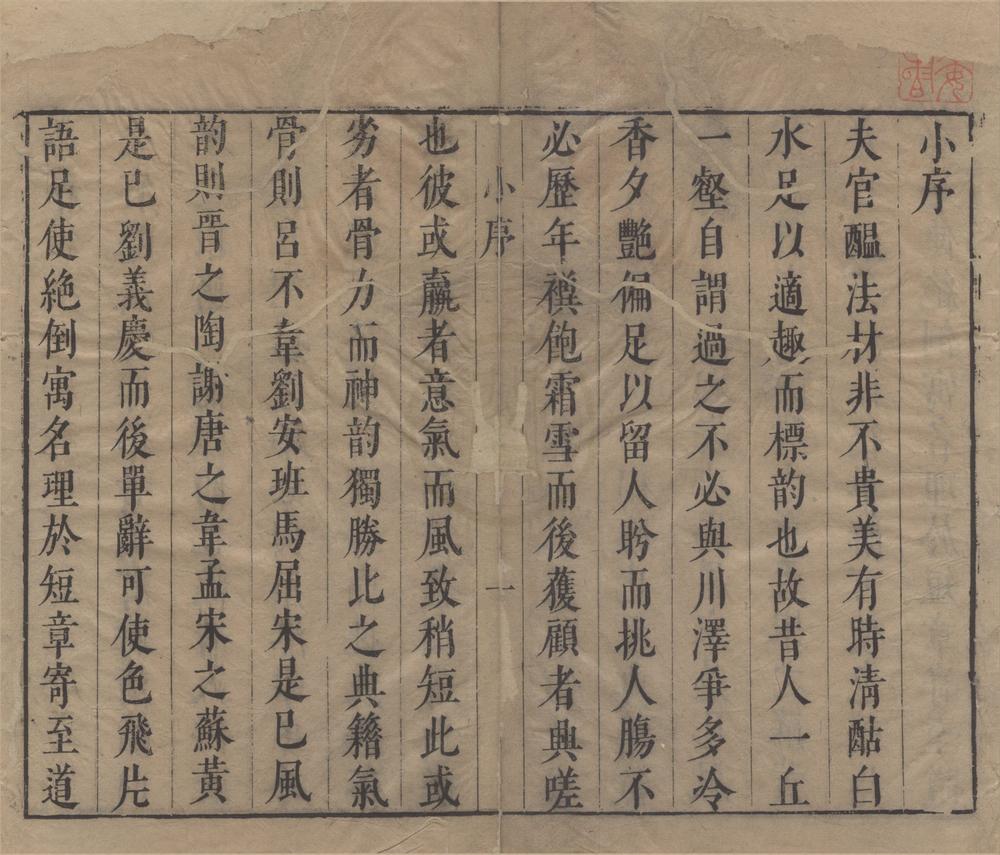 小序
夫官醖法材非不貴美有時淸酤白
水足以適趣而標韵也故昔人一丘
一壑自謂過之不必與川澤爭多冷
香夕艷偏足以留人盻而挑人膓不
必歷年禩飽霜雪而後獲顧者典嗟
小序
一
也彼或贏者意氣而風致稍短此或
劣者骨力而神韵獨勝比之典籍氣
骨則呂不韋劉安班馬屈宋是巳風
韵則晋之陶謝唐之韋孟宋之蘇黃
是巳劉義慶而後單辭可使色飛片
語足使絶倒寓名理於短章寄至道